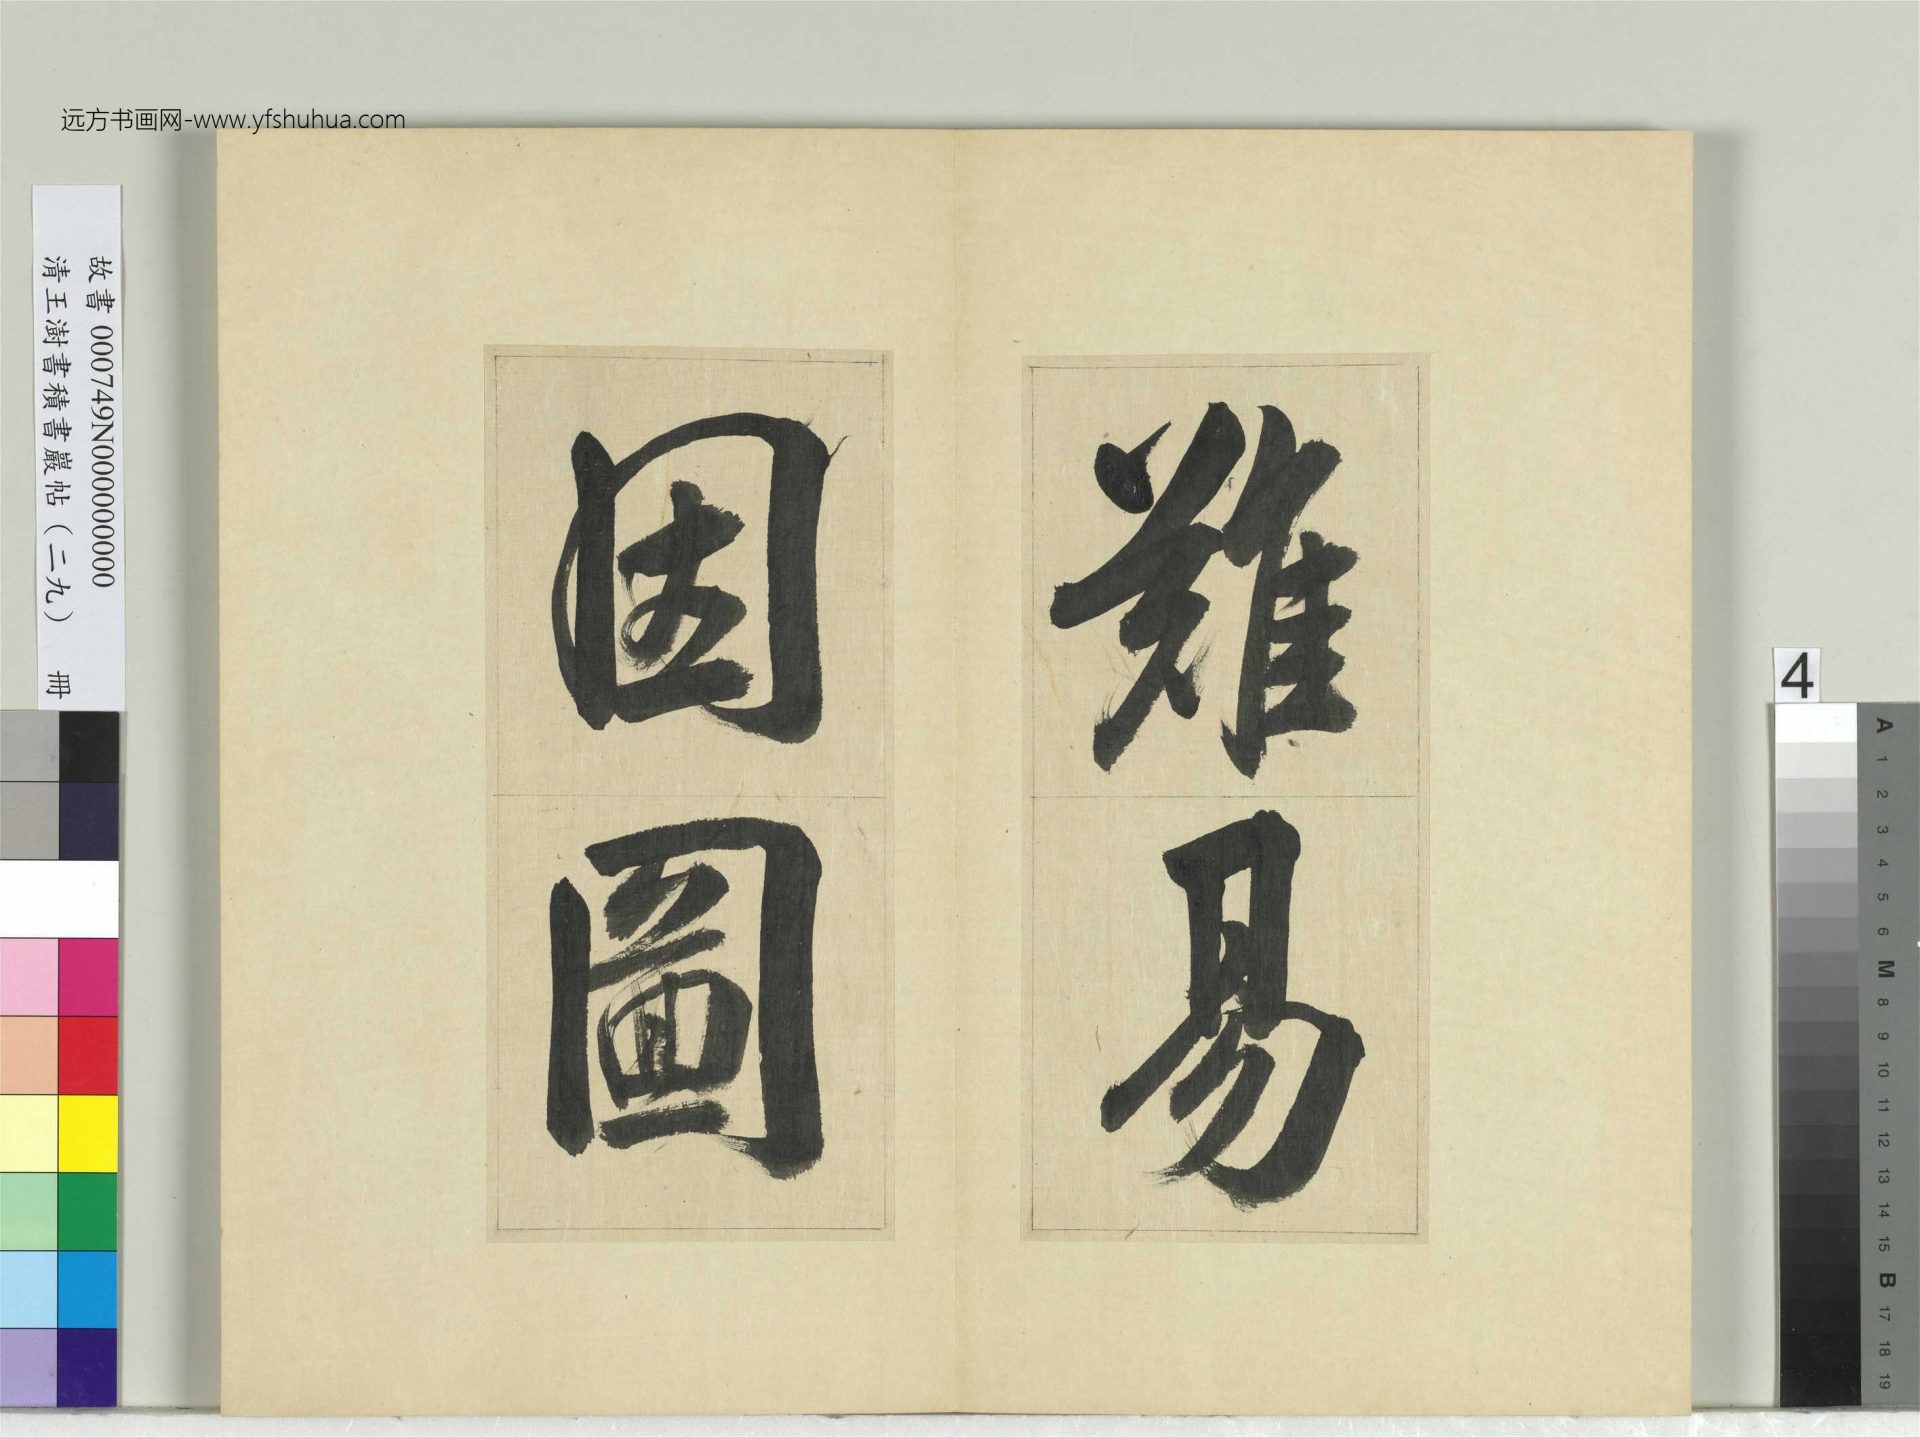 远方书画网-www.yfshuhua.com
故書 000749N000000000
清王澍書積書巖帖（二九） 冊
難易
因圖
4
A
1
2
3
4
5
6
M
8
9
10
11
12
13
14
15
B
17
18
19